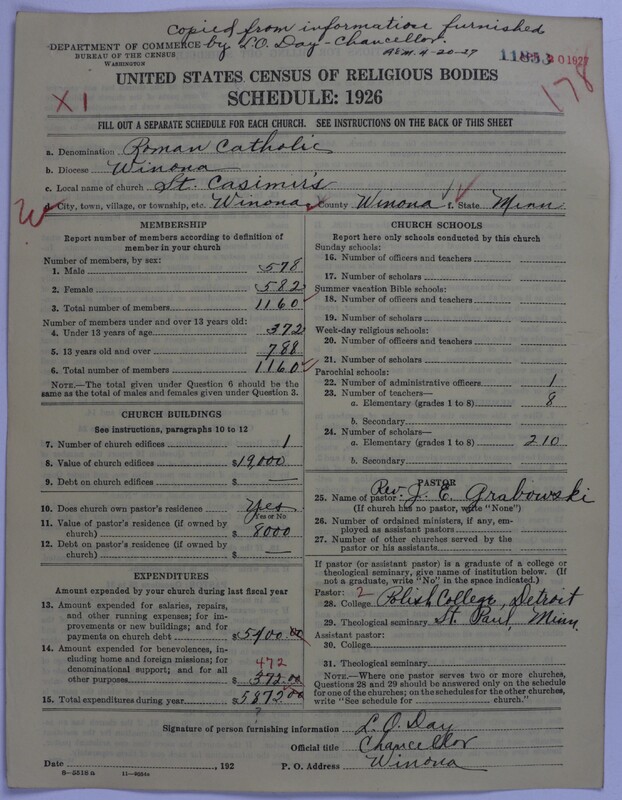 Copied from information furnished
by L.O. Day - Chancellor.
DEPARTMENT OF COMMERCE
BUREAU OF THE CENSUS
WASHINGTON
4-20-27
UNITED STATES CENSUS OF RELIGIOUS BODIES
SCHEDULE: 1926
X1
178
FILL OUT A SEPARATE SCHEDULE FOR EACH CHURCH. SEE INSTRUCTIONS ON THE BACK OF THIS SHEET
a. Denomination Roman Catholic
b. Diocese Winona
c. Local name of church St. Casimir's
City, town, village, or township, etc. Winona County Winona f. State Minn
MEMBERSHIP
Report number of members according to definition of
member in your church
Number of members, by sex:
1. Male 578
2. Female 582
3. Total number of members 1160
Number of members under and over 13 years old:
4. Under 13 years of age 372
5. 13 years old and over 788
6. Total number of members 1160
NOTE.—The total given under Question 6 should be the
same as the total of males and females given under Question 3.
CHURCH BUILDINGS
See instructions, paragraphs 10 to 12
7. Number of church edifices 1
8. Value of church edifices $19,000
9. Debt on church edifices $ —
10. Does church own pastor's residence Yes
Yes or No
11. Value of pastor's residence (if owned by
church) $ 8000
12. Debt on pastor's residence (if owned by
church) $ —
EXPENDITURES
Amount expended by your church during last fiscal year
13. Amount expended for salaries, repairs,
and other running expenses; for im-
provements or new buildings; and for
payments on church debt $5400.00
14. Amount expended for benevolences, in-
cluding home and foreign missions; for
denominational support; and for all 472
other purposes 372.00
15. Total expenditures during year $5872.00
?
CHURCH SCHOOLS
Report here only schools conducted by this church
Sunday schools:
16. Number of officers and teachers
17. Number of scholars
Summer vacation Bible schools:
18. Number of officers and teachers
19. Number of scholars
Week-day religious schools:
20. Number of officers and teachers
21. Number of scholars
Parochial schools:
22. Number of administrative officers 1
23. Number of teachers—
a. Elementary (grades 1 to 8) 8
b. Secondary
24. Number of scholars—
a. Elementary (grades 1 to 8) 210
b. Secondary
PASTOR
25. Name of pastor Rev. J. E. Grabowski
(If church has no pastor, write "None")
26. Number of ordained ministers, if any, em-
ployed as assistant pastors
27. Number of other churches served by the
pastor or his assistants
If pastor (or assistant pastor) is a graduate of a college or
theological seminary, give name of institution below. (If
not a graduate, write "No" in the space indicated.)
Pastor: 2
28. College Polish College, Detroit
29. Theological seminary St. Paul, Minn.
Assistant pastor:
30. College
31. Theological seminary
NOTE.—Where one pastor serves two or more churches,
Questions 28 and 29 should be answered only on the schedule
for one of the churches; on the schedules for the other churches,
write "See schedule for church."
Signature of person furnishing information L. O. Day
Official title Chancellor
Date , 192 P. O. Address Winona
8-5518 a